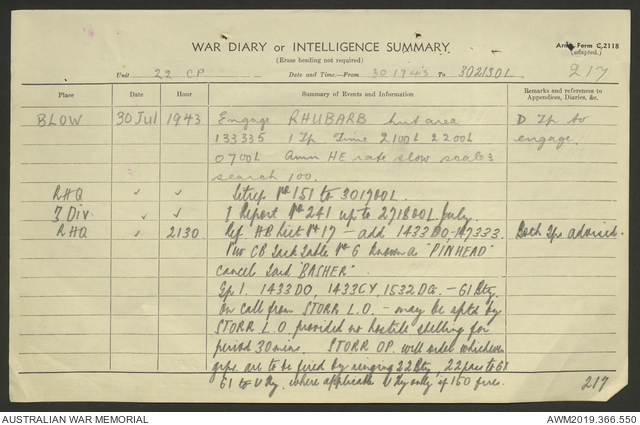 WAR DIARY or INTELLIGENCE SUMMARY.
(Erase heading not required)
Army Form C.2118
(adapted.)
217
Unit 22 CP
Date and Time—From 301943 To 302130L
Place
Date
Hour
Summary of Events and Information
Remarks and references to
Appendices, Diaries, &c.
BLOW 30 Jul 1943 Engage RHUBARB hut area D Tp to
133335 1 Tp Time 2100L 2200L engage.
0700L Amn HE rate slow scale 3
search 100.
RHQ ✓ ✓ Sitrep No 151 to 301900L.
7 Div ✓ ✓ I Report No 241 up to 271800L July.
RHQ ✓ 2130 Ref HB List No 17 — add 1433 DO Both Tps advised.
CB Task Table No 6 known as "PINHEAD"
cancel Task "BASHER".
Gp 1. 1433DO, 1433CY, 1532DG. — 61 Bty.
On call from STORR L.O. — may be by
STORR L.O. provided no hostile shelling for
period 30 mins. STORR OP. will order whichever
gps. are to be fired by ringing 22 Bty, 22 pass to 61
61 to U Bty. where applicable U Bty only, if 150 fires.
217
AUSTRALIAN WAR MEMORIAL
AWM2019.366.550